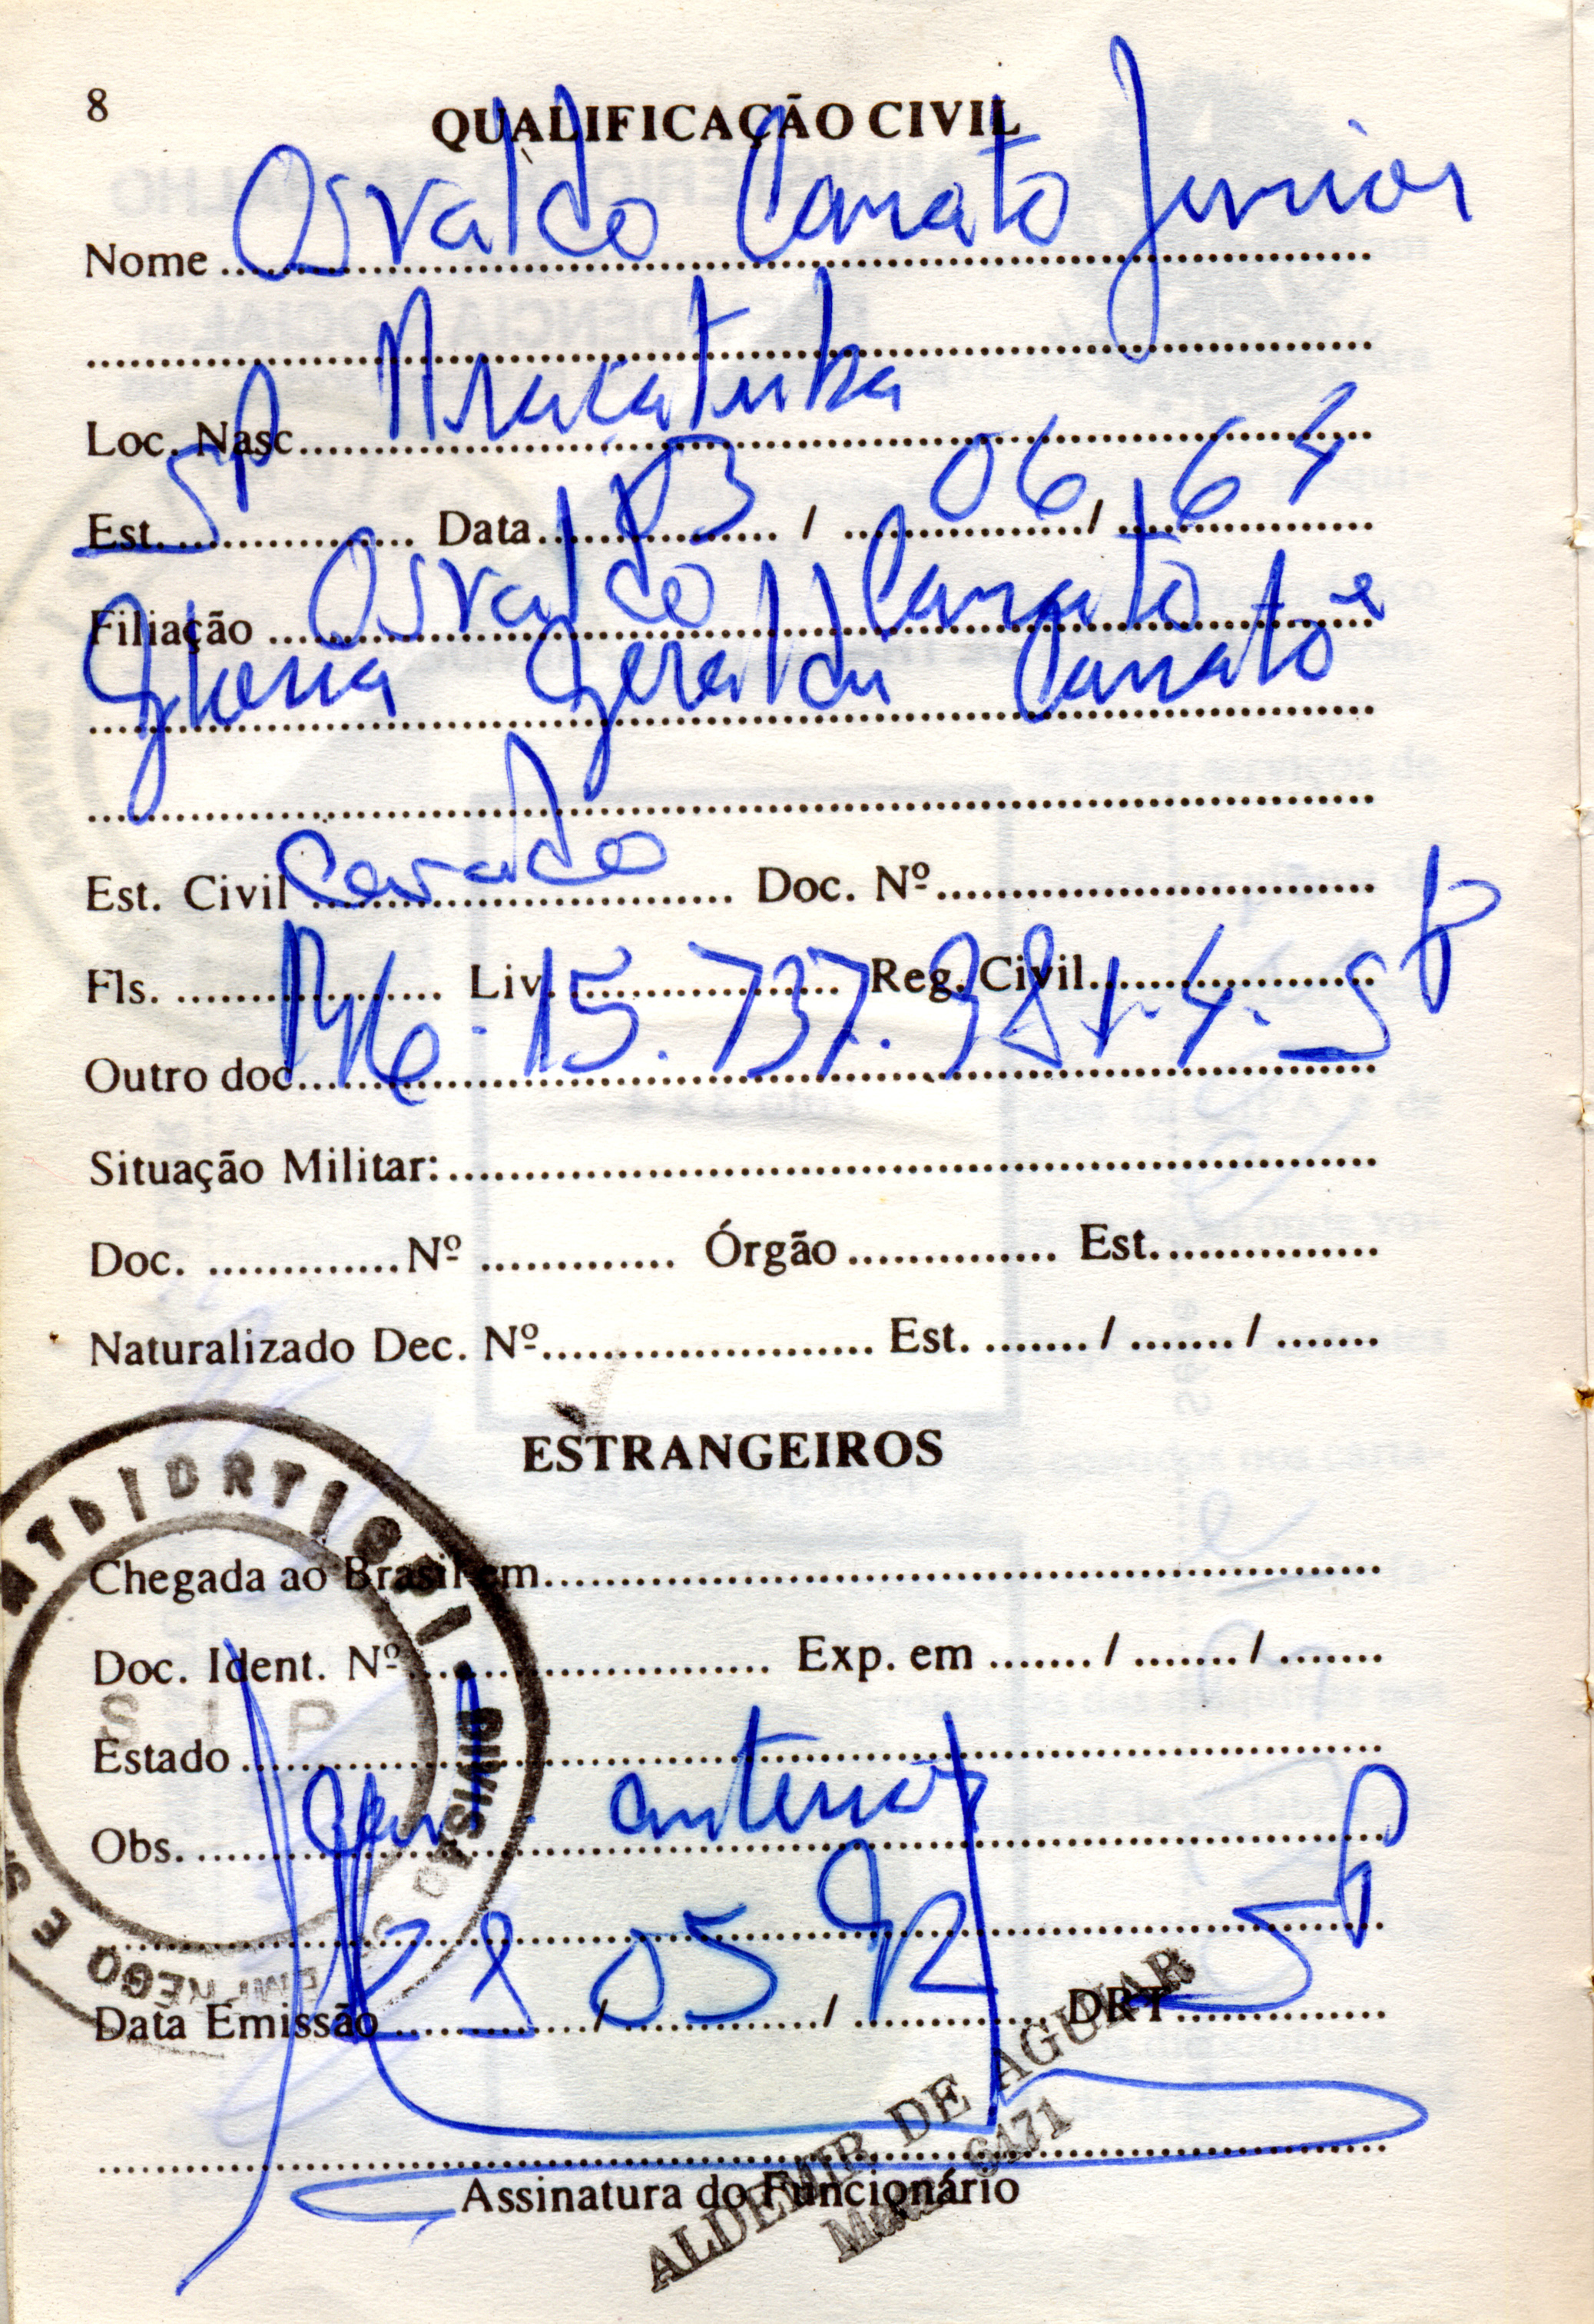 8
QUALIFICAÇÃO CIVIL
Nome Osvaldo Canato Junior
Loc. Nasc. Araçatuba
Est. SP Data 03 / 06 / 64
Filiação Osvaldo Canato e
Geralda Canato
Est. Civil Casado Doc. Nº
Fls. Liv. Reg. Civil
Outro doc. RG. 15.737.381-4-SP
Situação Militar:
Doc. Nº Órgão Est.
Naturalizado Dec. Nº Est. / /
ESTRANGEIROS
Chegada ao Brasil em
Doc. Ident. Nº Exp. em / /
SIP
Estado
Obs. anterior
Data Emissão 28 / 05 / 92 DRT SP
Assinatura do Funcionário
ALDEMIR DE AGUIAR
6471